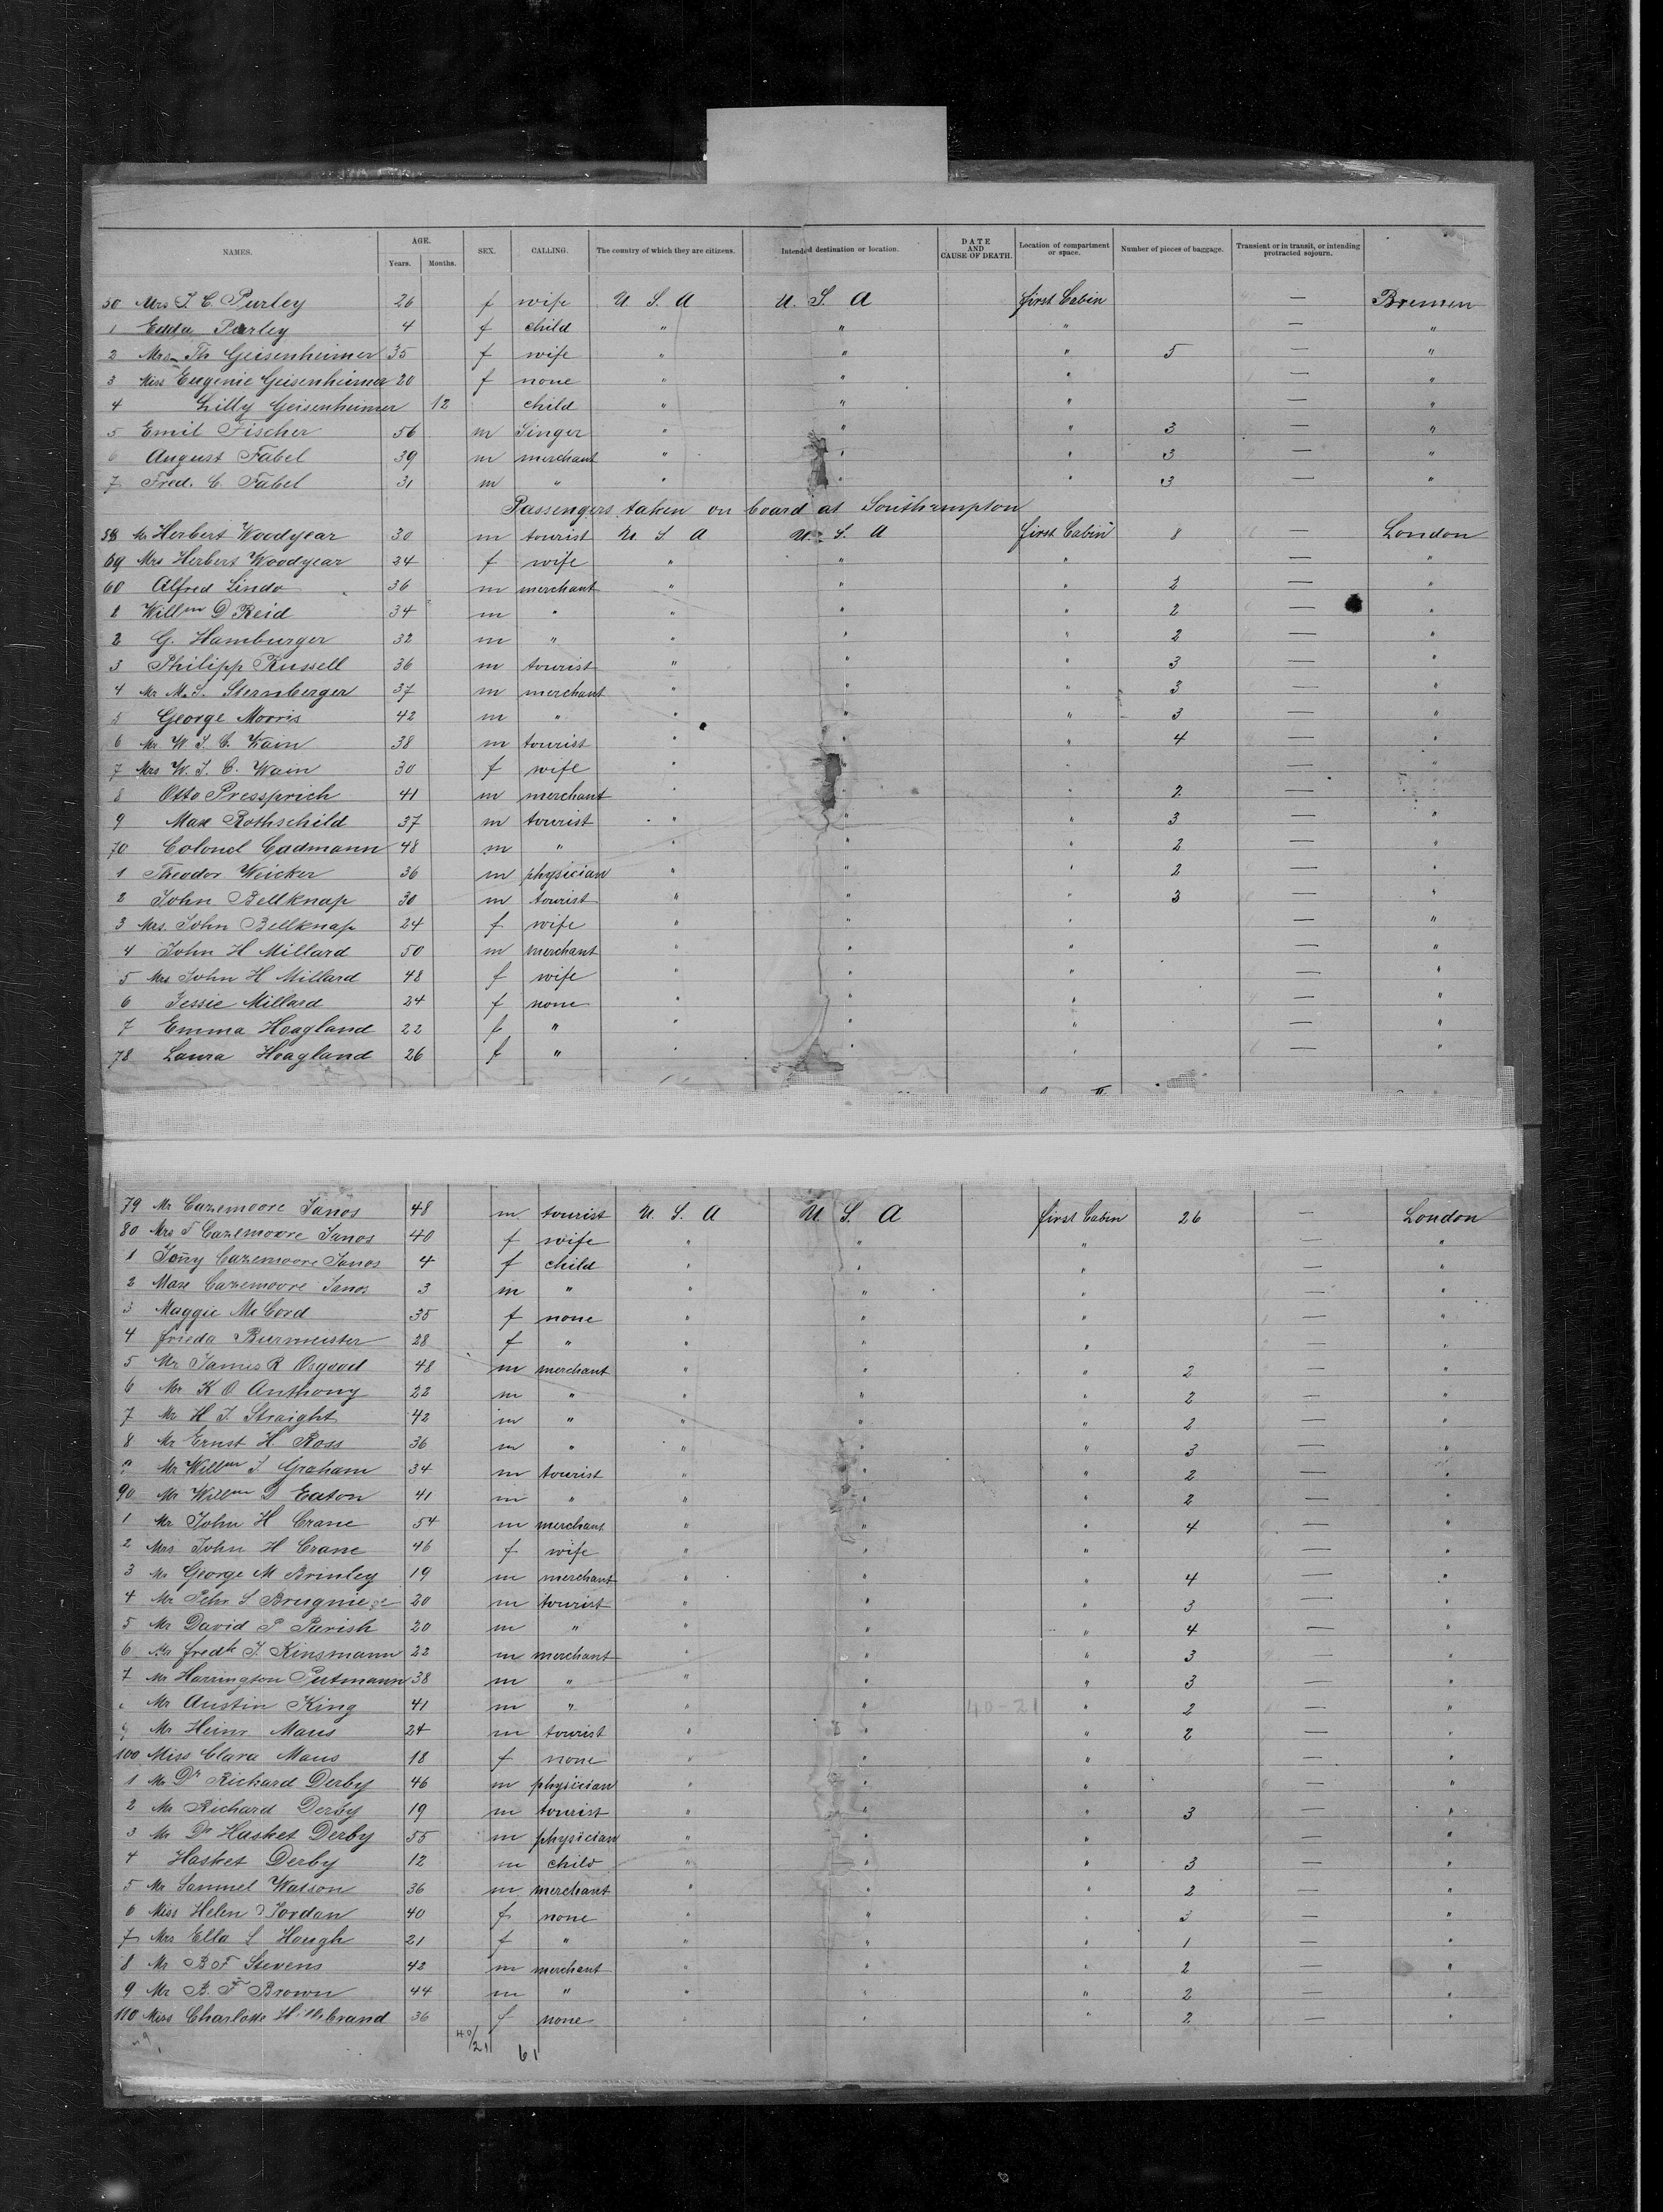 NAMES. AGE. Years. Months. SEX. CALLING. The country of which they are citizens. Intended destination or location. DATE AND CAUSE OF DEATH. Location of compartment or space. Number of pieces of baggage. Transient or in transit, or intending protracted sojourn.
50 Mrs J. C. Purley 26 f wife U. S. A U. S. A first Cabin — Bremen
1 Edda Purley 4 f child " " " — "
2 Mrs Th Geisenheimer 35 f wife " " " 5 — "
3 Miss Eugenie Geisenheimer 20 f none " " " — "
4 Lilly Geisenheimer 12 child " " " — "
5 Emil Fischer 56 m Singer " " " 3 — "
6 August Fabel 39 m merchant " " " 3 — "
7 Fred. C. Fabel 31 m " " " " 3 — "
Passengers taken on board at Southampton
58 Mr Herbert Woodyear 30 m tourist U S A U. S. A first Cabin 8 — London
59 Mrs Herbert Woodyear 24 f wife " " " — "
60 Alfred Lindo 36 m merchant " " " 2 — "
1 Willm D Reid 34 m " " " " 2 — "
2 G. Hamburger 32 m " " " " 2 — "
3 Philipp Russell 36 m tourist " " " 3 — "
4 Mr M. S. Sternberger 37 m merchant " " " 3 — "
5 George Morris 42 m " " " " 3 — "
6 Mr W. J. C. Wain 38 m tourist " " " 4 — "
7 Mrs W. J. C. Wain 30 f wife " " " — "
8 Otto Pressprich 41 m merchant " " " 2 — "
9 Max Rothschild 37 m tourist " " " 3 — "
70 Colonel Cadmann 48 m " " " " 2 — "
1 Theodor Weicker 36 m physician " " " 2 — "
2 John Bellknap 30 m tourist " " " 3 — "
3 Mrs. John Bellknap 24 f wife " " " — "
4 John H Millard 50 m merchant " " " — "
5 Mrs John H Millard 48 f wife " " " — "
6 Jessie Millard 24 f none " " " — "
7 Emma Hoagland 22 f " " " " — "
78 Laura Hoagland 26 f " " " " — "
79 Mr Cazemoore Janos 48 m tourist U. S. A U. S. A first Cabin 26 — London
80 Mrs T Cazemoore Janos 40 f wife " " " — "
1 Jony Cazemoore Janos 4 f child " " " — "
2 Max Cazemoore Janos 3 m " " " " — "
3 Maggie Mc Cord 35 f none " " " — "
4 Frieda Burmeister 28 f " " " " — "
5 Mr James R Osgood 48 m merchant " " " 2 — "
6 Mr K O Anthony 22 m " " " " 2 — "
7 Mr H J. Straight 42 m " " " " 2 — "
8 Mr Ernst H. Ross 36 m " " " " 3 — "
9 Mr Willm J Graham 34 m tourist " " " 2 — "
90 Mr Willm D Eaton 41 m " " " " 2 — "
1 Mr John H Crane 54 m merchant " " " 4 — "
2 Mrs John H Crane 46 f wife " " " — "
3 Mr George M Brinley 19 m merchant " " " 4 — "
4 Mr S 20 m tourist " " " 3 — "
5 Mr David P Parish 20 m " " " " 4 — "
6 Mr Fredk J. Kinsmann 22 m merchant " " " 3 — "
7 Mr Harrington Putmann 38 m " " " " 3 — "
Mr Austin King 41 m " " " 40-21 " 2 — "
9 Mr Heinr Maus 24 m tourist " " " 2 — "
100 Miss Clara Maus 18 f none " " " — "
1 Mr Dr Richard Derby 46 m physician " " " — "
2 Mr Richard Derby 19 m tourist " " " 3 — "
3 Mr Dr Hasket Derby 55 m physician " " " — "
4 Hasket Derby 12 m child " " " 3 — "
5 Mr Samuel Watson 36 m merchant " " " 2 — "
6 Miss Helen Jordan 40 f none " " " 3 — "
7 Mrs Ella S Hough 21 f " " " " 1 — "
8 Mr B. F Stevens 42 m merchant " " " 2 — "
9 Mr B. F Brown 44 m " " " " 2 — "
110 Miss Charlotte Hillebrand 36 f none " " " 2 — "
40/21 61